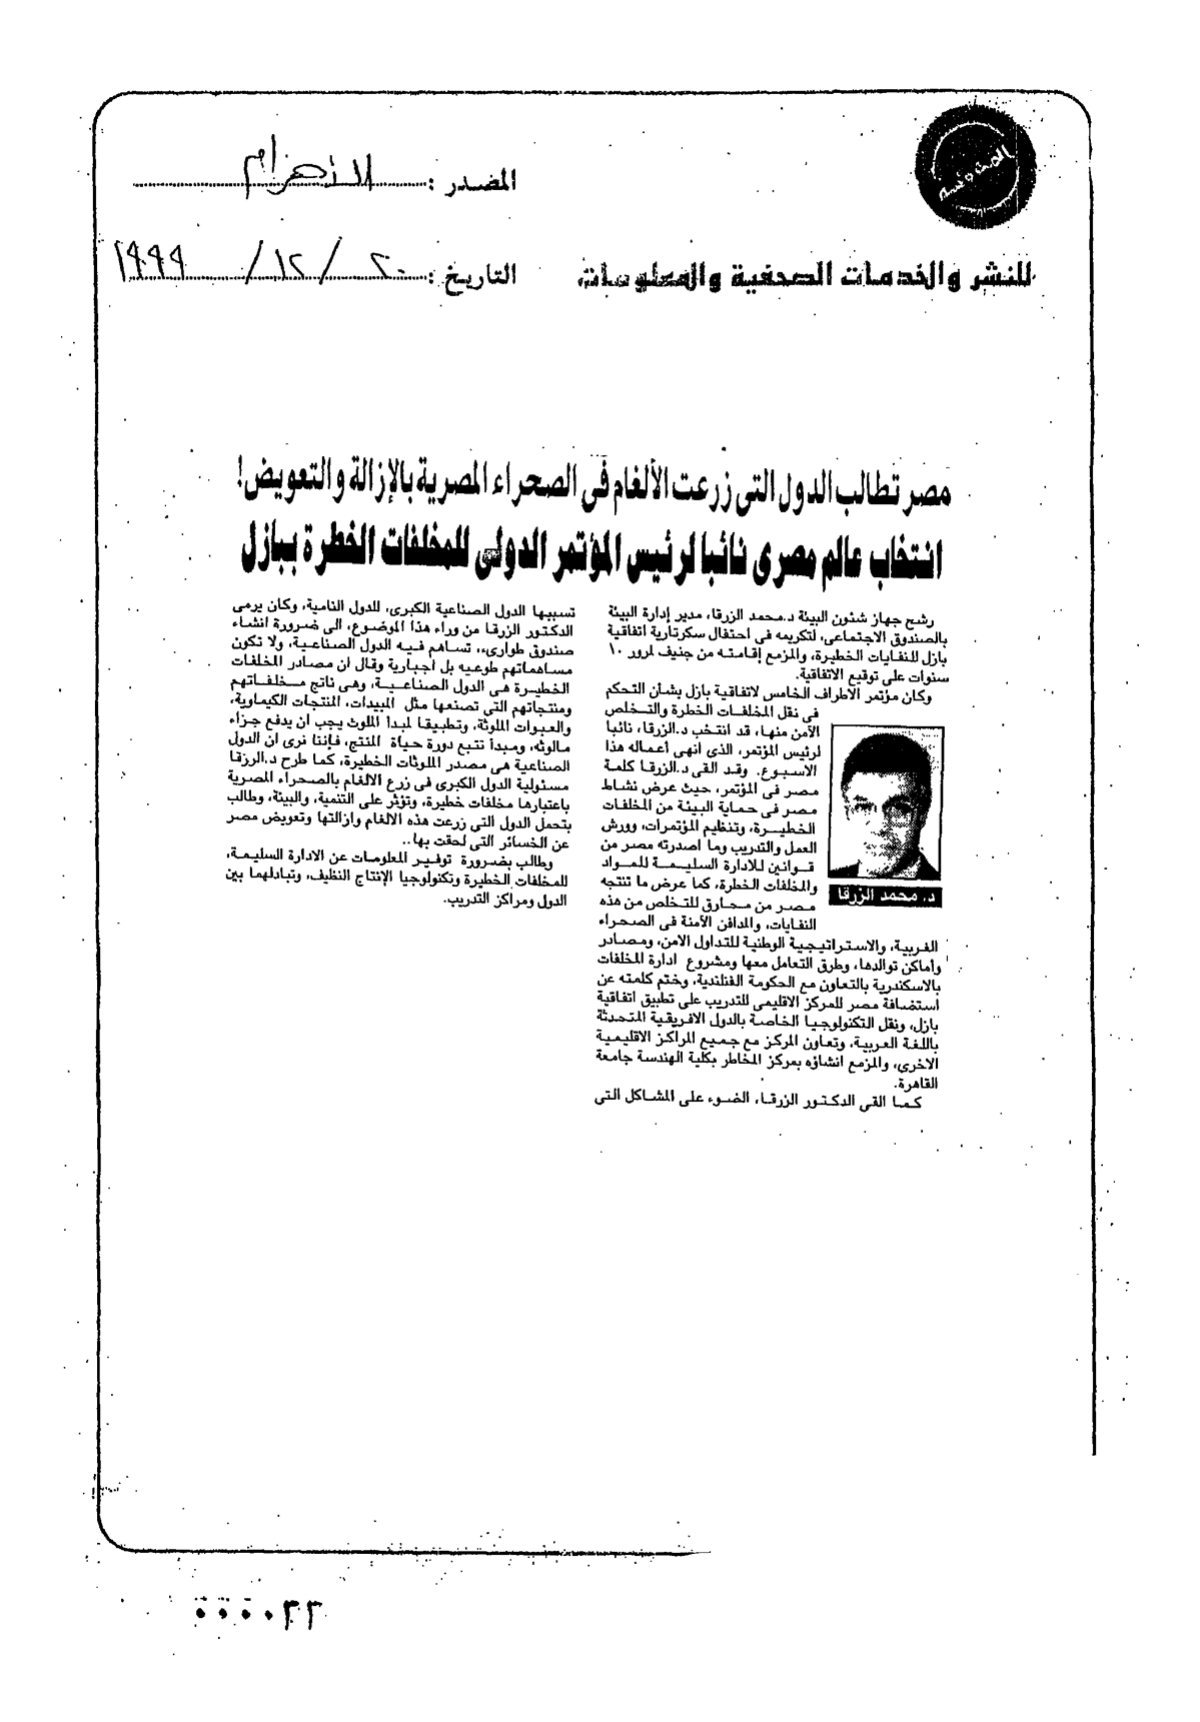 المصدر : الأهرام
للنشر والخدمات الصحفية والمعلومات
التاريخ : ٢٠ / ١٢ / ١٩٩٩
مصر تطالب الدول التى زرعت الألغام فى الصحراء المصرية بالإزالة والتعويض!
انتخاب عالم مصرى نائبا لرئيس المؤتمر الدولى للمخلفات الخطرة ببازل
رشح جهاز شئون البيئة د.محمد الزرقا، مدير إدارة البيئة
بالصندوق الاجتماعى، لتكريمه فى احتفال سكرتارية اتفاقية
بازل للنفايات الخطيرة، والمزمع إقامته من جنيف لمرور ١٠
سنوات على توقيع الاتفاقية.
وكان مؤتمر الاطراف الخامس لاتفاقية بازل بشأن التحكم
فى نقل المخلفات الخطرة والتخلص
الآمن منها، قد انتخب د.الزرقا، نائبا
لرئيس المؤتمر، الذى انهى أعماله هذا
الاسبوع. وقد القى د.الزرقا كلمة
مصر فى المؤتمر، حيث عرض نشاط
مصر فى حماية البيئة من المخلفات
الخطيرة، وتنظيم المؤتمرات، وورش
العمل والتدريب وما اصدرته مصر من
قوانين للادارة السليمة للمواد
والمخلفات الخطرة، كما عرض ما تنتجه
مصر من محارق للتخلص من هذه
النفايات، والمدافن الآمنة فى الصحراء
د. محمد الزرقا
الغربية، والاستراتيجية الوطنية للتداول الامن، ومصادر
وأماكن توالدها، وطرق التعامل معها ومشروع ادارة المخلفات
بالاسكندرية بالتعاون مع الحكومة الفنلندية، وختم كلمته عن
استضافة مصر للمركز الاقليمى للتدريب على تطبيق اتفاقية
بازل، ونقل التكنولوجيا الخاصة بالدول الافريقية المتحدثة
باللغة العربية، وتعاون المركز مع جميع المراكز الاقليمية
الاخرى، والمزمع انشاؤه بمركز المخاطر بكلية الهندسة جامعة
القاهرة.
كما القى الدكتور الزرقا، الضوء على المشاكل التى
تسببها الدول الصناعية الكبرى، للدول النامية، وكان يرمى
الدكتور الزرقا من وراء هذا الموضوع، الى ضرورة انشاء
صندوق طوارى،، تساهم فيه الدول الصناعية، ولا تكون
مساهماتهم طوعيه بل اجبارية وقال ان مصادر المخلفات
الخطيرة هى الدول الصناعية، وهى ناتج مخلفاتهم
ومنتجاتهم التى تصنعها مثل المبيدات، المنتجات الكيماوية،
والعبوات الملوثة، وتطبيقا لمبدأ الملوث يجب ان يدفع جزاء
مالوثه، ومبدأ تتبع دورة حياة المنتج، فإننا نرى ان الدول
الصناعية هى مصدر الملوثات الخطيرة، كما طرح د.الرزقا
مسئولية الدول الكبرى فى زرع الالغام بالصحراء المصرية
باعتبارها مخلفات خطيرة، وتؤثر على التنمية، والبيئة، وطالب
بتحمل الدول التى زرعت هذه الالغام وازالتها وتعويض مصر
عن الخسائر التى لحقت بها..
وطالب بضرورة توفير المعلومات عن الادارة السليمة،
للمخلفات الخطيرة وتكنولوجيا الإنتاج النظيف، وتبادلهما بين
الدول ومراكز التدريب.